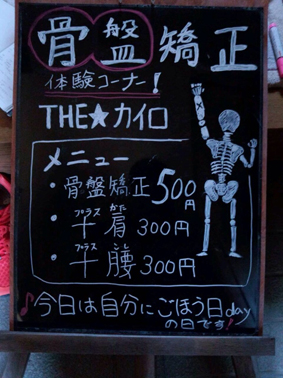 骨盤矯正
体験コーナー!
THE★カイロ
メニュー
・骨盤矯正500円
・プラス＋肩かた300円
・プラス＋腰300円
♪今日は自分にごほう日day
の日です!